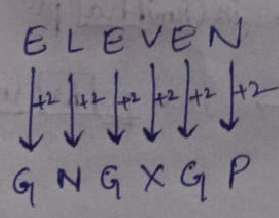 E L E V E N
+2 +2 +2 +2 +2 +2
G N G X G P